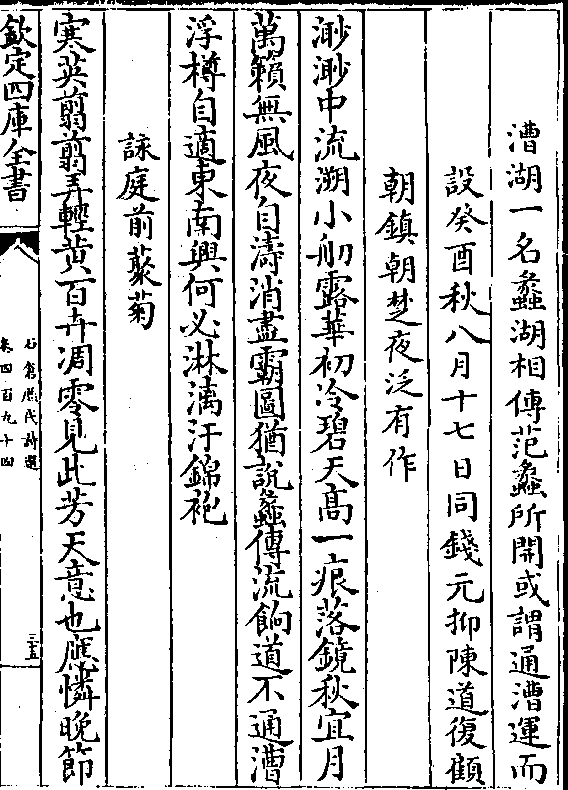 漕湖一名蠡湖相傳范蠡所開或謂通漕運而
設癸酉秋八月十七日同錢元抑陳道復顧
朝鎮朝楚夜泛有作
渺渺中流溯小舠露華初冷碧天髙一痕落鏡秋宜月
萬籟無風夜自濤消盡霸圖猶説蠡傳流餉道不通漕
浮樽自適東南興何必淋漓汙錦袍
詠庭前藂菊
寒英翦翦弄輕黄百卉凋零見此芳天意也應憐晚節
欽定四庫全書
石倉歴代詩選
卷四百九十四
三五